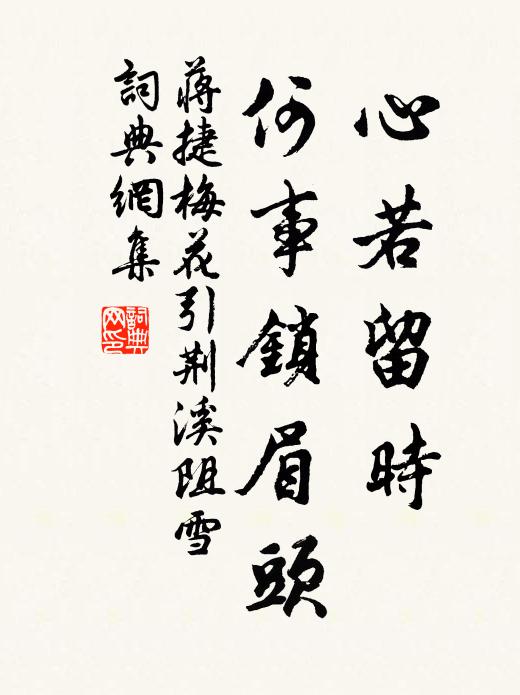 心若留時
何事鎖眉頭
蔣捷梅花引荆溪阻雪
詞典網集
詞典
网印